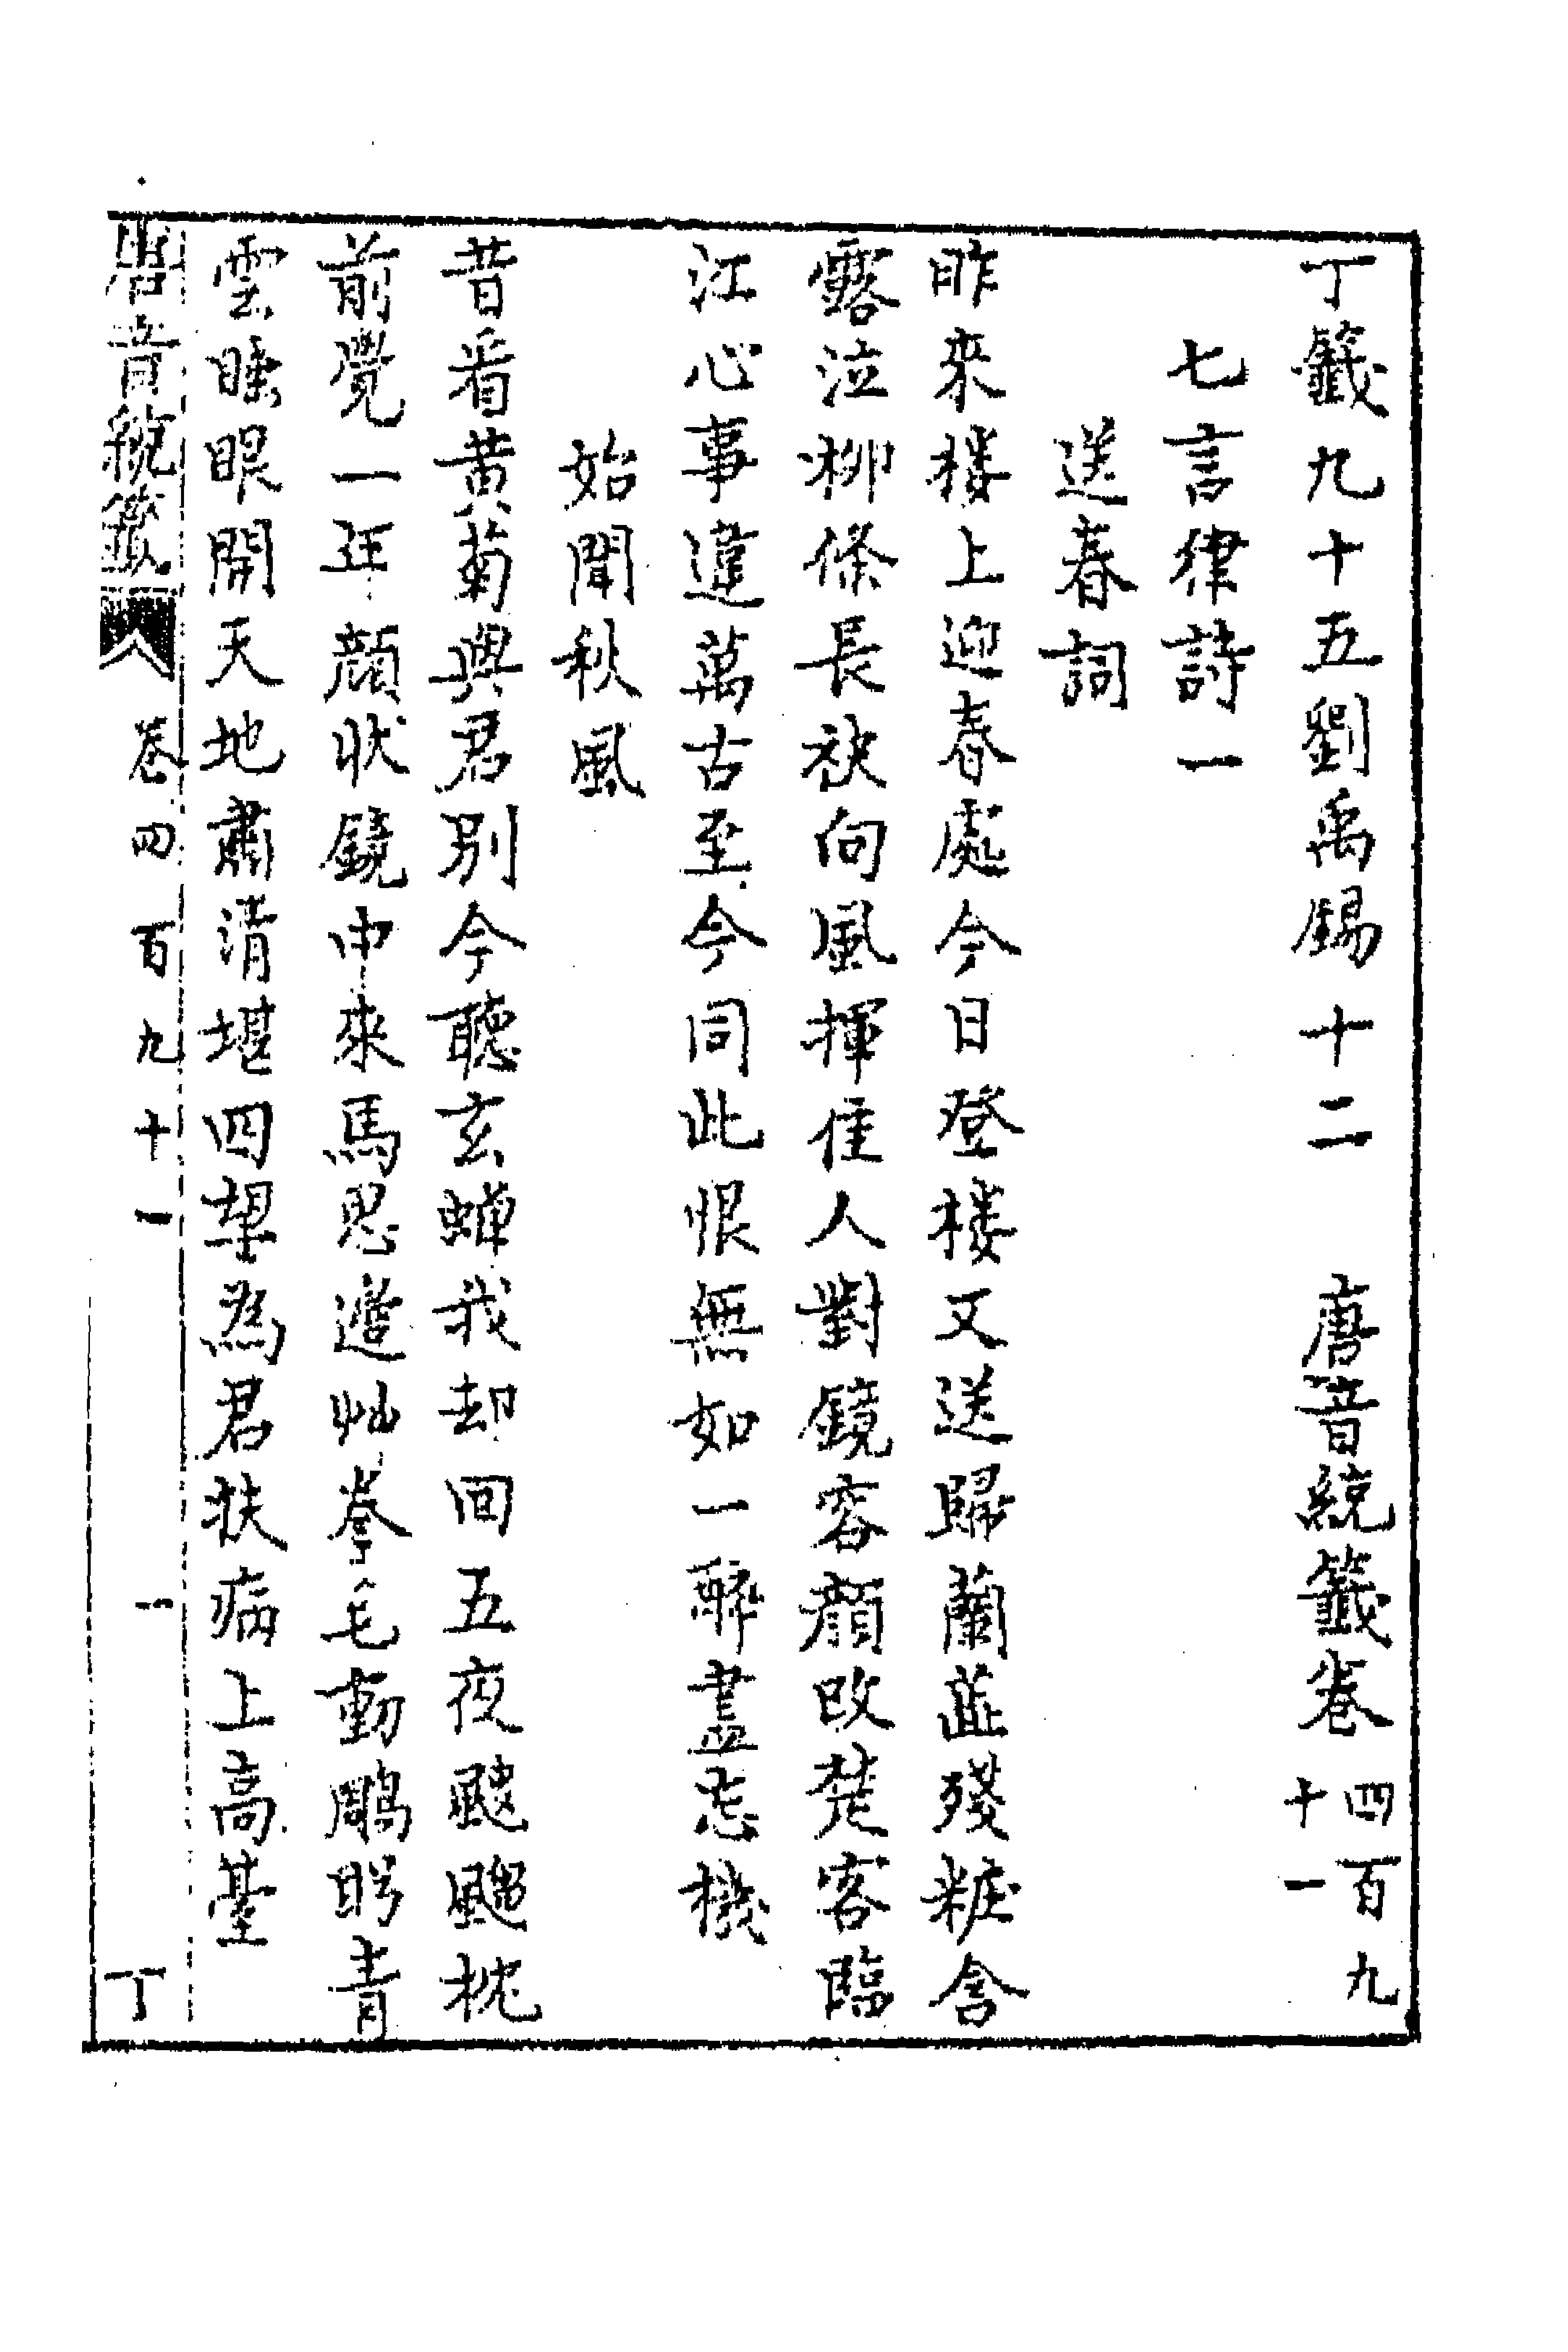 丁籤九十五劉禹錫十二　唐音統籤卷四百九十一
七言律詩一
送春詞
昨來樓上迎春處今日登樓又送歸蘭蘂殘粧含
露泣柳條長袂向風揮佳人對鏡容顏改楚客臨
江心事違萬古至今同此恨無如一醉盡忘機
始聞秋風
昔看黃菊與君別今聽玄蟬我却回五夜颼飀枕
前覺一年顏狀鏡中來馬思邊草拳毛動鵰眄青
雲睡眼開天地肅清堪四望為君扶病上高臺
唐音統籤　卷四百九十一　一　丁